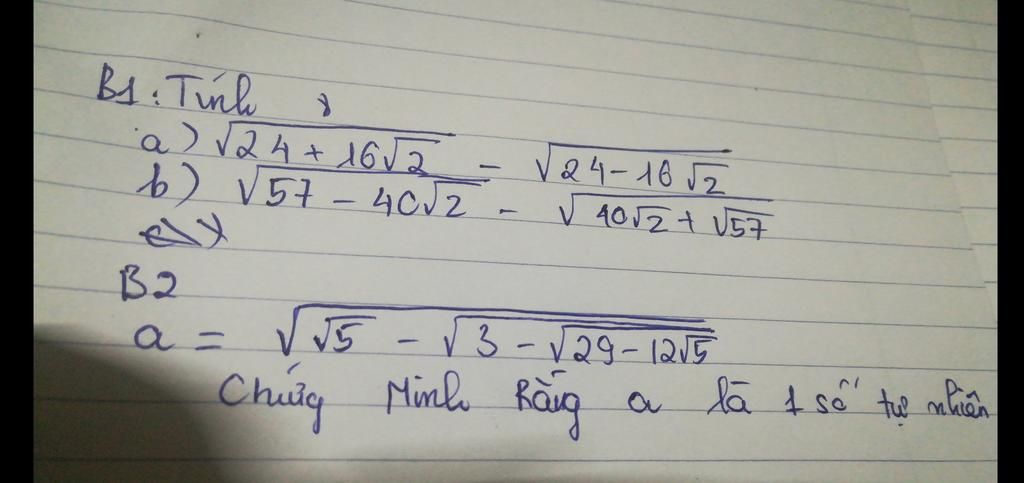 B1: Tính
a) √(24 + 16√2) - √(24 - 16√2)
b) √(57 - 40√2) - √(40√2 + √57)
B2
a = √(√5 - √(3 - √(29 - 12√5)))
Chứng Minh Rằng a là 1 số tự nhiên